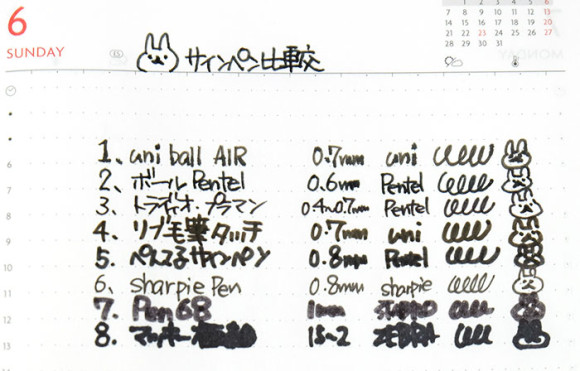 6
SUNDAY
サインペン比較
1 2 3 4 5 6
7 8 9 10 11 12 13
14 15 16 17 18 19 20
21 22 23 24 25 26 27
28 29 30 31
MONDAY
1、uni ball AIR 0.7mm uni
2、ボール Pentel 0.6mm Pentel
3、トラディオ・プラマン 0.4~0.7mm Pentel
4、リブ毛筆タッチ 0.7mm uni
5、ぺんてるサインペン 0.8mm Pentel
6、sharpie Pen 0.8mm sharpie
7、Pen 68 1mm
8、マッキー 1.5~2 ZEBRA
6
7
8
9
10
11
12
13